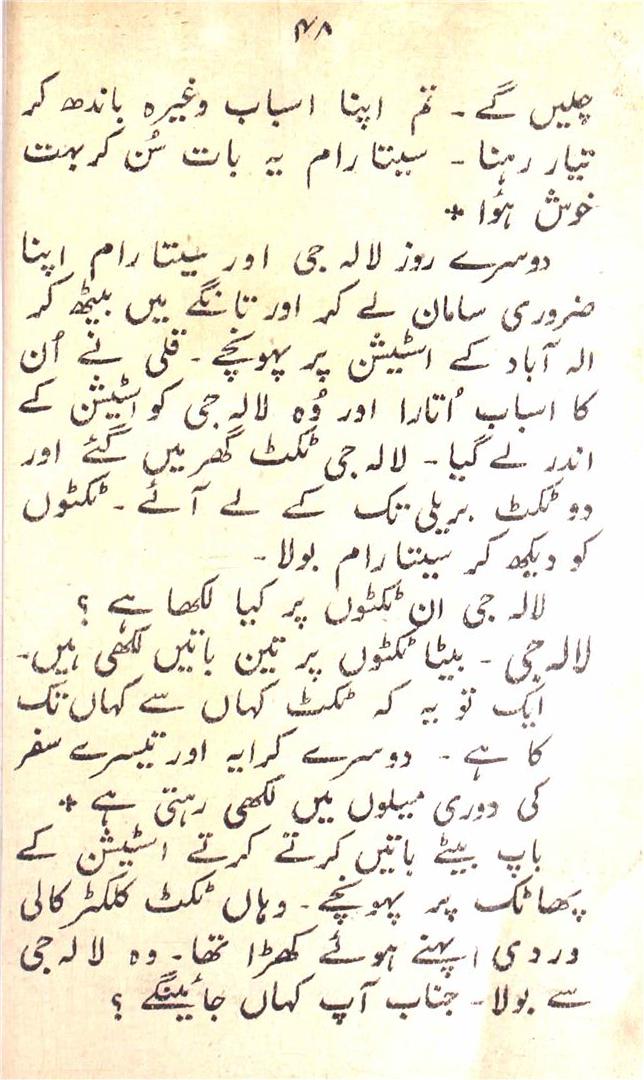 ۴۸
چلیں گے۔ تم اپنا اسباب وغیرہ باندھ کر
تیار رہنا۔ سیتا رام یہ بات سُن کر بہت
خوش ہؤا +
دوسرے روز لالہ جی اور سیتا رام اپنا
ضروری سامان لے کر اور تانگے میں بیٹھ کر
الہ آباد کے اسٹیشن پر پہونچے۔ قلی نے اُن
کا اسباب اُتارا اور وُہ لالہ جی کو اسٹیشن کے
اندر لے گیا۔ لالہ جی ٹکٹ گھر میں گئے اور
دو ٹکٹ بریلی تک کے لے آئے۔ ٹکٹوں
کو دیکھ کر سیتا رام بولا۔
لالہ جی ان ٹکٹوں پر کیا لکھا ہے ؟
لالہ جی ۔ بیٹا ٹکٹوں پر تین باتیں لکھی ہیں۔
ایک تو یہ کہ ٹکٹ کہاں سے کہاں تک
کا ہے ۔ دوسرے کرایہ اور تیسرے سفر
کی دوری میلوں میں لکھی رہتی ہے +
باپ بیٹے باتیں کرتے کرتے اسٹیشن کے
پھاٹک پر پہونچے۔ وہاں ٹکٹ کلکٹر کالی
وردی پہنے ہوئے کھڑا تھا۔ وہ لالہ جی
سے بولا۔ جناب آپ کہاں جائینگے ؟